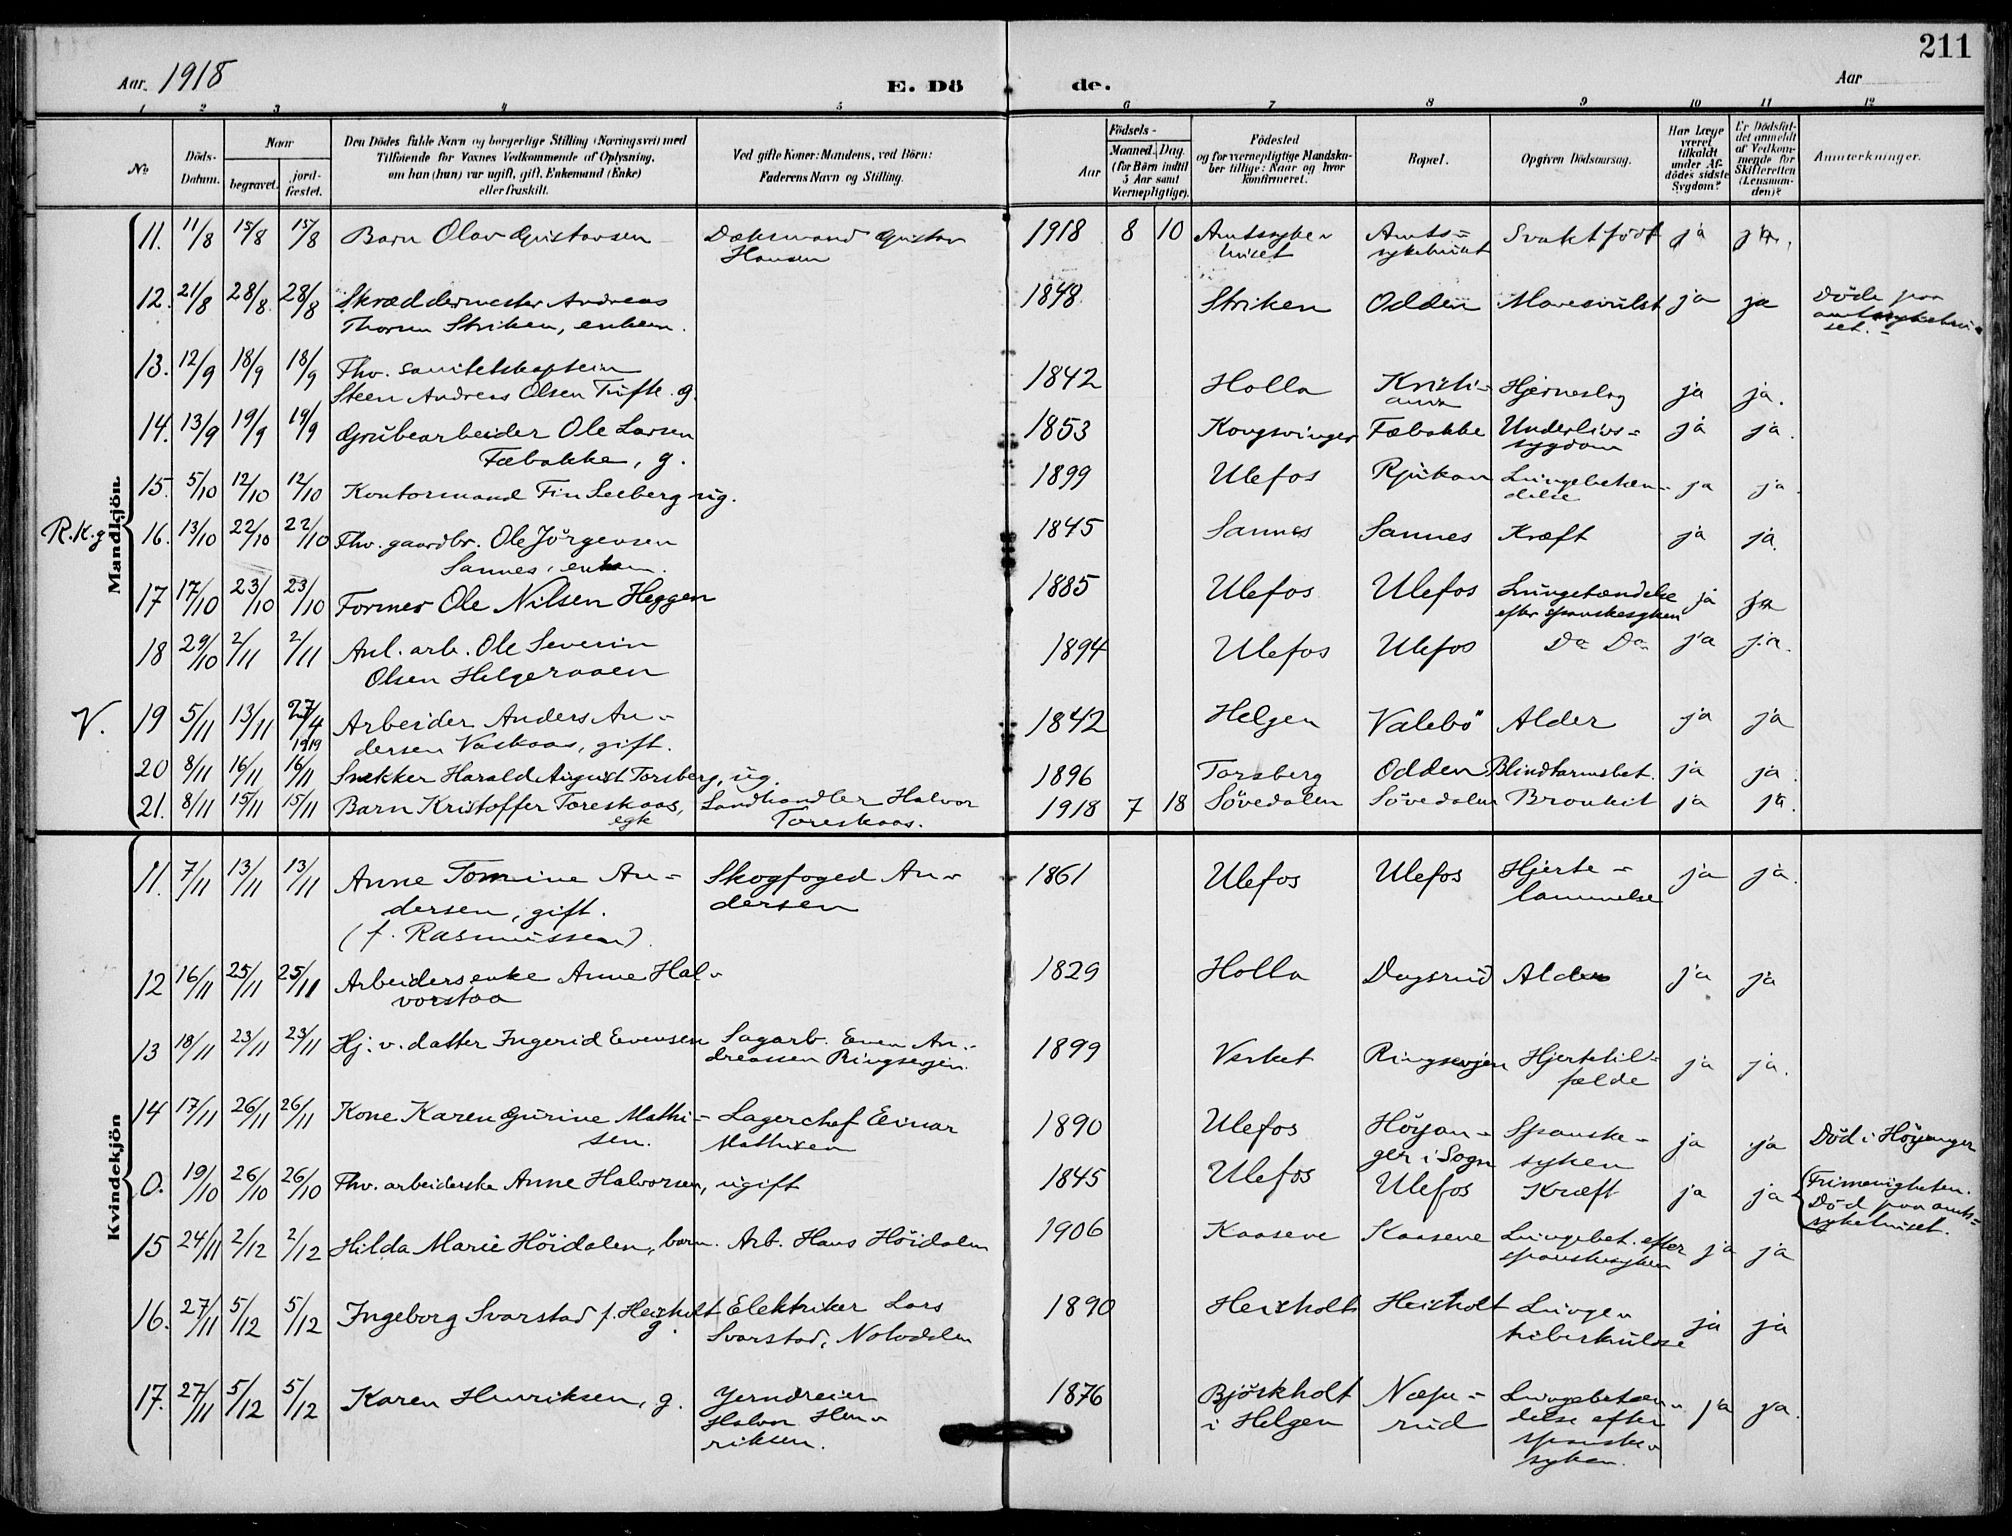 211
Aar. 1918
E. Dö de.
Aar
1 2 3 4 5 6 7 8 9 10 11 12
No
Döds-Datum.
Naar
begravet.
jord-fæstet.
Den Dödes fulde Navn og borgerlige Stilling (Næringsvei) med
Tilföiende for Voxnes Vedkommende af Oplysning,
om han (hun) var ugift, gift, Enkemand (Enke)
eller fraskilt.
Ved gifte Koner: Mandens, ved Börn:
Faderens Navn og Stilling.
Födsels-
Aar
Maaned. Dag.
(for Börn indtil
5 Aar samt
Værnepligtige).
Födested
og for værnepligtige Mandska-
ber tillige: Naar og hvor
konfirmeret.
Bopæl.
Opgiven Dödsaarsag.
Har Læge
været
tilkaldt
under Af-
dödes sidste
Sygdom?
Er Dödsfal-
det anmeldt
af Vedkom-
mende for
Skifteretten
(Lensman-
den)?
Anmærkninger.
Mandkjön
11. 11/8 15/8 15/8 Barn Olav Gustavsen Dæksmand Gustav 1918 8 10 Amtssyke- Amts- Svaktfödt ja ja.
Hansen huset sykehuset
12. 21/8 28/8 28/8 Skræddermester Andreas 1848 Striken Odden Mavesvulst ja ja Döde paa
Thorsen Striken, enkem. amtssykehu-
set.-
13. 12/9 18/9 18/9 Fhv. sanitetskaptein 1842 Holla Kristi- Hjerneslag ja ja.
Steen Andreas Olsen Tufte. g. ania
14. 13/9 19/9 19/9 Grubearbeider Ole Larsen 1853 Kongsvinger Fæbakke Underlivs- ja ja.
Fæbakke, g. sygdom
15. 5/10 12/10 12/10 Kontormand Fin Seeberg ug. 1899 Ulefos Rjukan Lungebetæn- ja ja.
delse
R.K.g 16. 13/10 22/10 22/10 Fhv. gaardbr. Ole Jörgensen 1845 Sannes Sannes Kræft ja ja.
Sannes, enkem.
17 17/10 23/10 23/10 Former Ole Nilsen Heggen 1885 Ulefos Ulefos Lungetændelse ja ja
efter spanskesyken
18 29/10 2/11 2/11 Anl. arb. Ole Severin 1894 Ulefos Ulefos Do Do ja ja.
Olsen Helgeraaen
V. 19 5/11 13/11 27/4 1919 Arbeider Anders An- 1842 Helgen Valebö Alder ja ja
dersen Vaskaas, gift.
20 8/11 16/11 16/11 Snekker Harald August Torsberg, ug. 1896 Torsberg Odden Blindtarmsbet. ja ja.
21. 8/11 15/11 15/11 Barn Kristoffer Toreskaas, Landhandler Halvor 1918 7 18 Sövedalen Sövedalen Bronkit ja ja.
egte Toreskaas.
Kvindekjön
11. 7/11 13/11 13/11 Anne Tomine An- Skogfoged An- 1861 Ulefos Ulefos Hjerte- ja ja.
dersen, gift. dersen lammelse
(f. Rasmussen).
12 16/11 25/11 25/11 Arbeidersenke Anne Hal- 1829 Holla Dagsrud Alder ja ja
vorstaa
13 18/11 23/11 23/11 Hj. v. datter Ingerid Evensen Sagarb. Even An- 1899 Verket Ringsevjen Hjertetil- ja ja.
dreassen Ringsevjen. fælde
14 17/11 26/11 26/11 Kone Karen Gurine Mathi- Lagerchef Einar 1890 Ulefos Höyan- Spanske- ja ja Död i Höyanger
sen. Mathisen ger i Sogn syken
0. 19/10 26/10 26/10 Fhv. arbeiderske Anne Halvorsen, ugift 1845 Ulefos Ulefos Kræft ja ja (Frimenigheten.
Död paa amts-
sykehuset.
15 24/11 2/12 2/12 Hilda Marie Höidalen, barn. Arb. Hans Höidalen 1906 Kaasene Kaasene Lungebet. efter ja ja
spanskesyken
16. 27/11 5/12 5/12 Ingeborg Svarstad f. Heisholt Elektriker Lars 1890 Heisholt Heisholt Lunge- ja ja
g. Svarstad, Notodden tuberkulose
17. 27/11 5/12 5/12 Karen Henriksen, g. Jerndreier 1876 Björkholt Næpe- Lungebetæn- ja ja.
Halvor Hen- i Helgen rud delse efter
riksen. spanske-
syken.